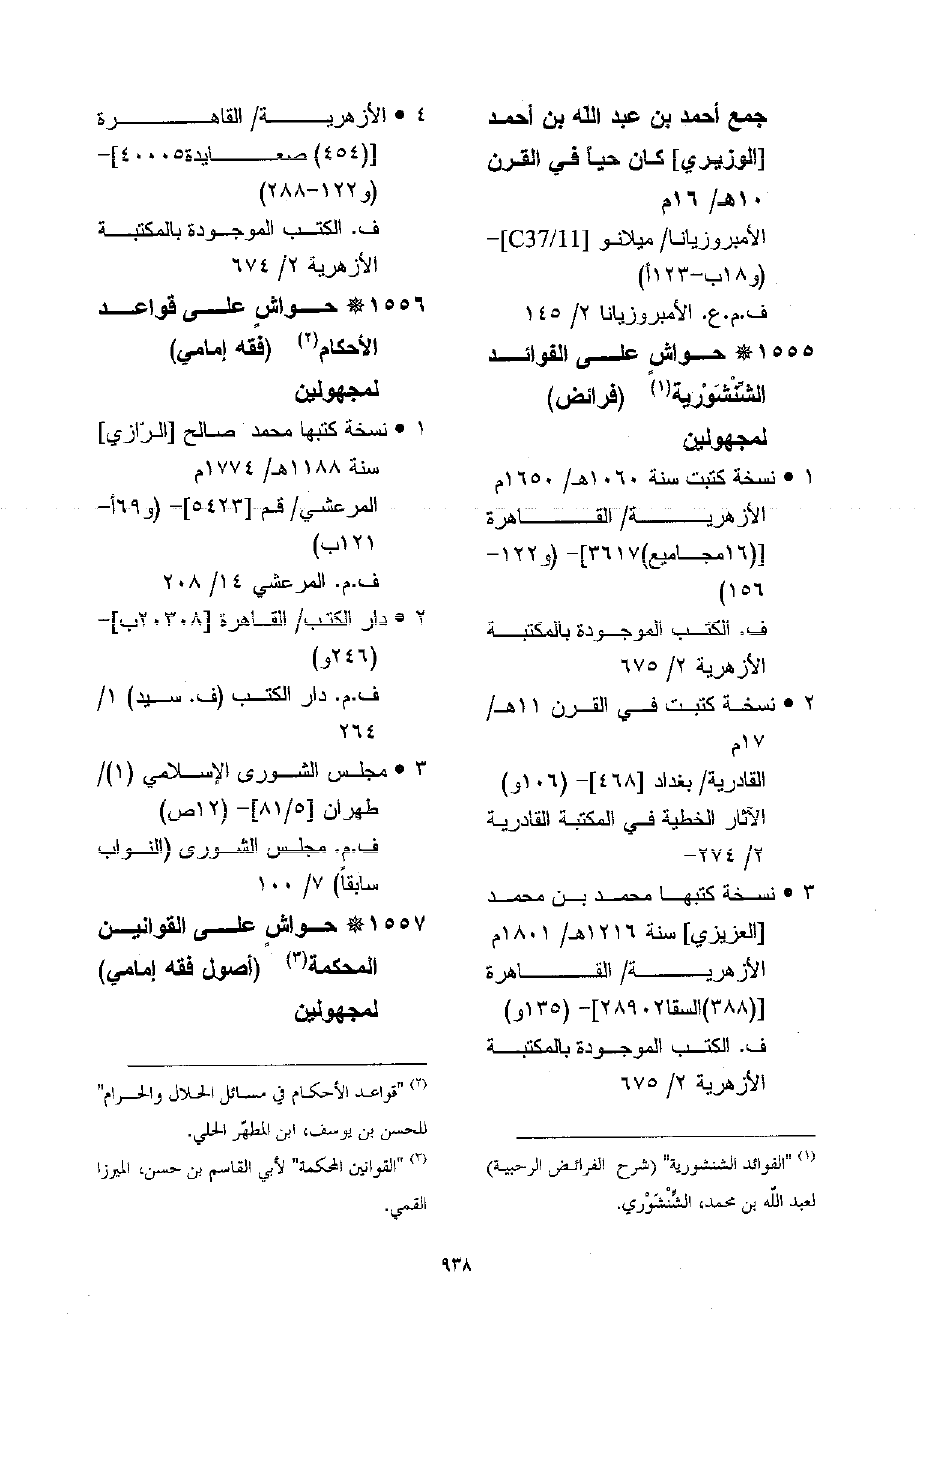 جمع أحمد بن عبد الله بن أحمد
[الوزيري] كان حياً في القرن
١٠هـ/ ١٦م
الأمبروزيانا/ ميلانو [C37/11]-
(و١٨ب-١٢٣أ)
ف.م.ع. الأمبروزيانا ٢/ ١٤٥
١٥٥٥* حواشٍ على الفوائد
الشِّنْشَوْرية(١) (فرائض)
لمجهولين
١ • نسخة كتبت سنة ١٠٦٠هـ/ ١٦٥٠م
الأزهرية/ القاهرة
[(١٦مجاميع)٣٦١٧]- (و١٢٢-
١٥٦)
ف. الكتب الموجودة بالمكتبة
الأزهرية ٢/ ٦٧٥
٢ • نسخة كتبت في القرن ١١هـ/
١٧م
القادرية/ بغداد [٤٦٨]- (١٠٦و)
الآثار الخطية في المكتبة القادرية
٢/ ٢٧٤-
٣ • نسخة كتبها محمد بن محمد
[العزيزي] سنة ١٢١٦هـ/ ١٨٠١م
الأزهرية/ القاهرة
[(٣٨٨)السقا٢٨٩٠٢]- (١٣٥و)
ف. الكتب الموجودة بالمكتبة
الأزهرية ٢/ ٦٧٥
(١) "الفوائد الشنشورية" (شرح الفرائض الرحبية)
لعبد الله بن محمد، الشِّنْشَوْري.
٤ • الأزهرية/ القاهرة
[(٤٥٤) صعايدة٤٠٠٠٥]-
(و١٢٢-٢٨٨)
ف. الكتب الموجودة بالمكتبة
الأزهرية ٢/ ٦٧٤
١٥٥٦* حواشٍ على قواعد
الأحكام(٢) (فقه إمامي)
لمجهولين
١ • نسخة كتبها محمد صالح [الرّازي]
سنة ١١٨٨هـ/ ١٧٧٤م
المرعشي/ قم [٥٤٢٣]- (و٦٩أ-
١٢١ب)
ف.م. المرعشي ١٤/ ٢٠٨
٢ • دار الكتب/ القاهرة [٢٠٣٠٨ب]-
(٢٤٦و)
ف.م. دار الكتب (ف. سيد) ١/
٢٦٤
٣ • مجلس الشورى الإسلامي (١)/
طهران [٨١/٥]- (١٢ص)
ف.م. مجلس الشورى (النواب
سابقاً) ٧/ ١٠٠
١٥٥٧* حواشٍ على القوانين
المحكمة(٣) (أصول فقه إمامي)
لمجهولين
(٢) "قواعد الأحكام في مسائل الحلال والحرام"
للحسن بن يوسف، ابن المطهّر الحلي.
(٣) "القوانين المحكمة" لأبي القاسم بن حسن، الميرزا
القمي.
٩٣٨